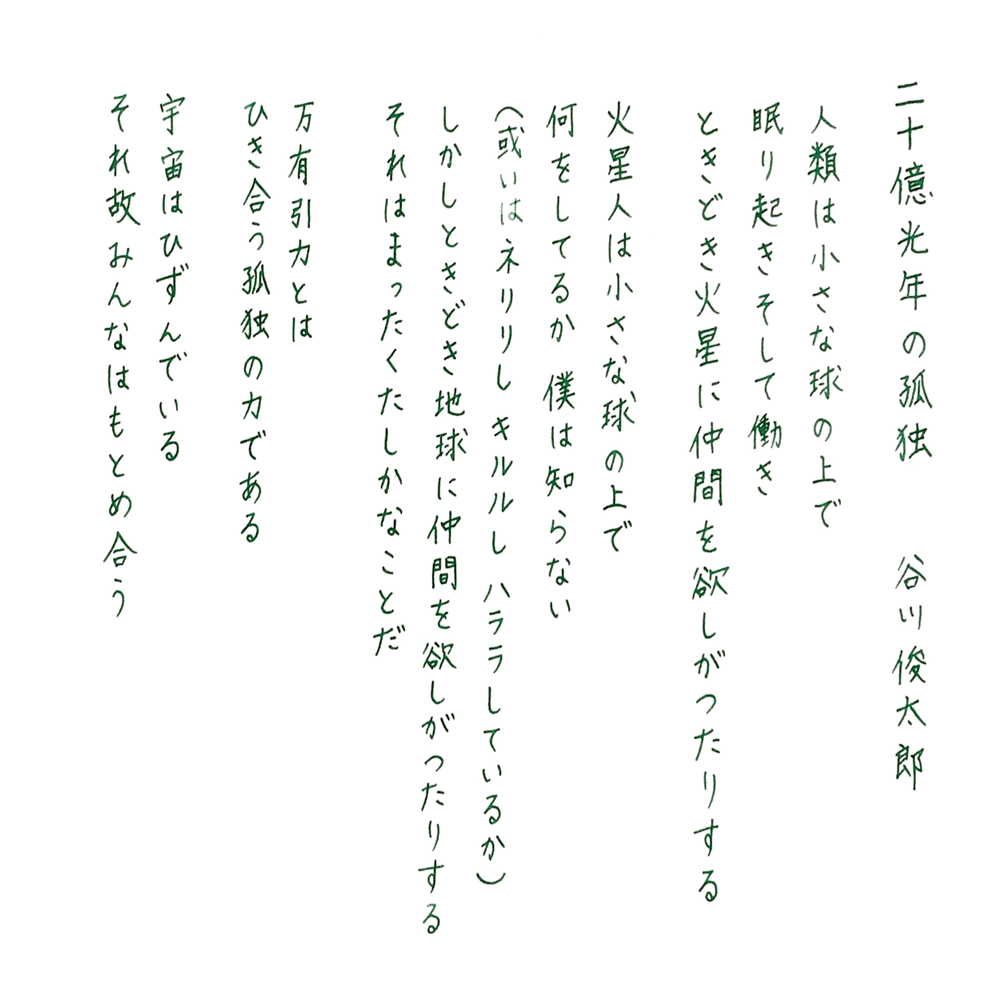 二十億光年の孤独　谷川俊太郎
人類は小さな球の上で
眠り起きそして働き
ときどき火星に仲間を欲しがったりする
火星人は小さな球の上で
何をしてるか 僕は知らない
（或いはネリリし キルルし ハララしているか）
しかしときどき地球に仲間を欲しがったりする
それはまったくたしかなことだ
万有引力とは
ひき合う孤独の力である
宇宙はひずんでいる
それ故みんなはもとめ合う